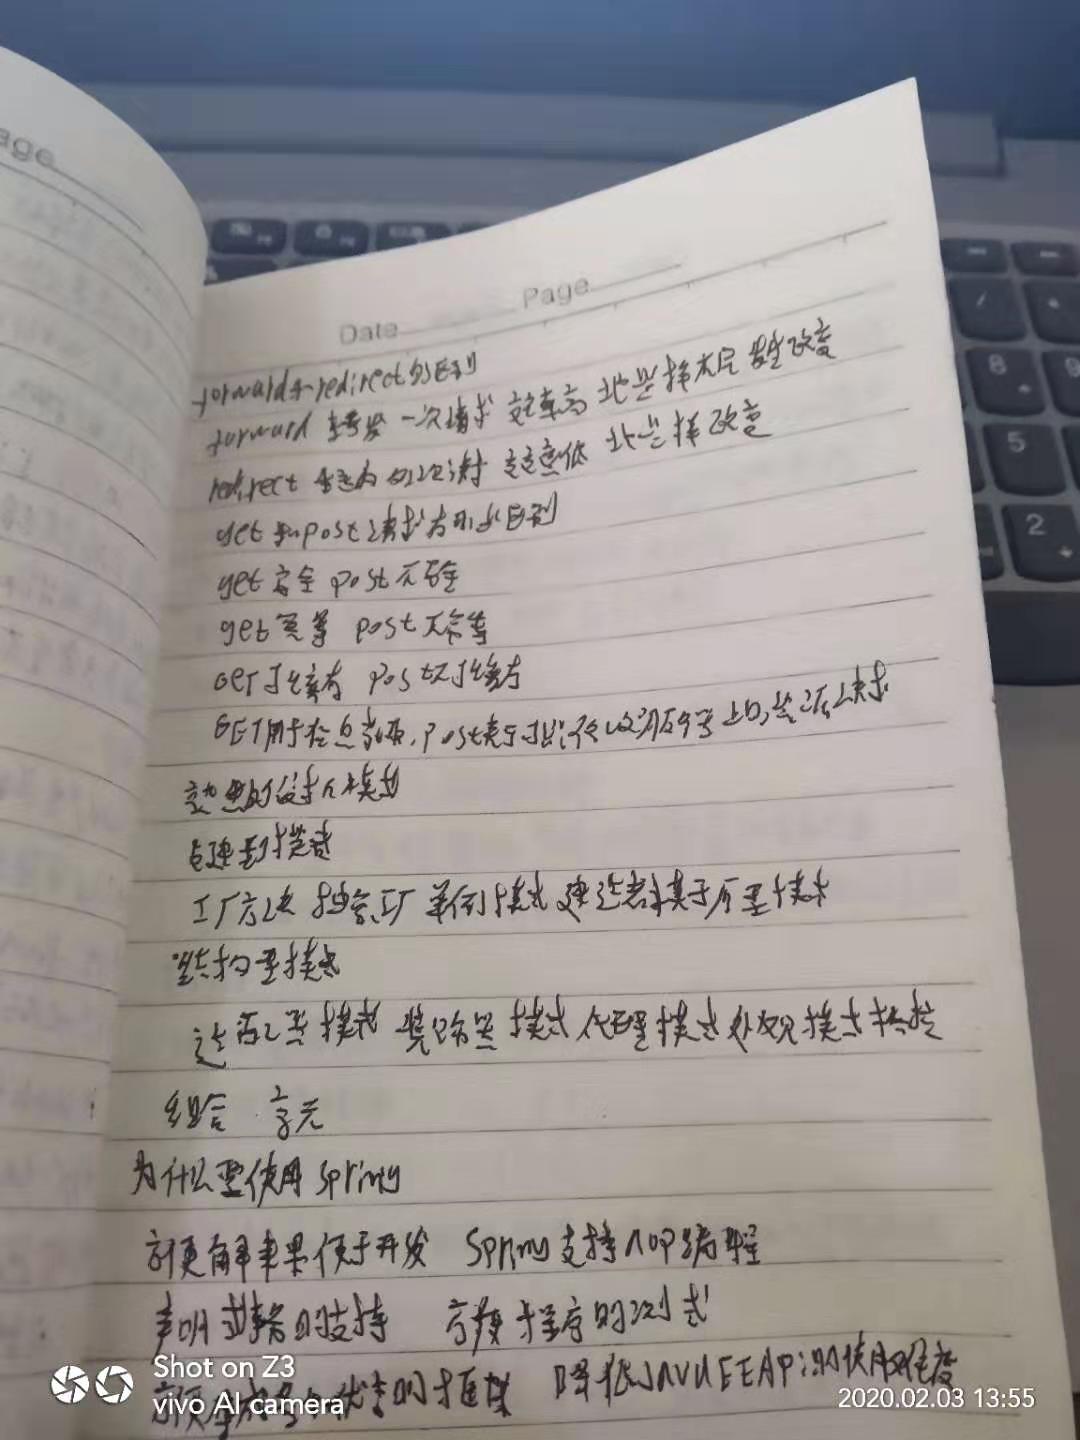 age
Date Page
forward和redirect的区别
forward 转发 一次请求 效率高 地址栏不发生改变
redirect 重定向 两次请求 效率低 地址栏改变
get 和post 请求方式区别
get 安全 post 不安全
get 幂等 post 不幂等
GET 可缓存 Post不可缓存
GET用于 post
熟悉的设计模式
创建型模式
工厂方法 抽象工厂 单例模式 建造者模式 原型模式
结构型模式
适配器模式 装饰器模式 代理模式 外观模式 桥接
组合 享元
为什么要使用 Spring
方便解耦 便于开发 Spring支持AOP编程
声明式事务的支持 方便程序的测试
方便集成各个优秀的框架 降低JAVAEEAPI的使用难度
Shot on Z3
vivo AI camera
2020.02.03 13:55